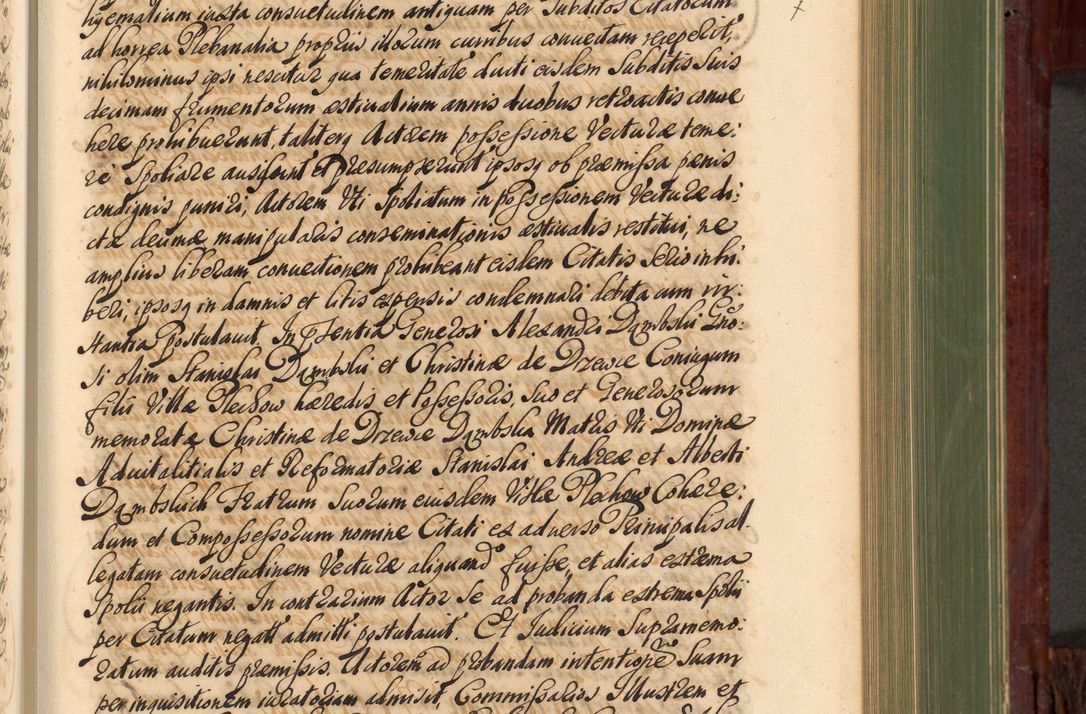 hyemalium iuxta consuetudinem antiquam per Subditos Citatorum
ad horrea Plebanalia propriis illorum curribus convectam recepit,
nihilominus ipsi nescitur qua temeritate ducti eisdem Subditis Suis
decimam frumentorum æstivalium annis duobus retroactis conve
here prohibuerunt, taliterq Actorem possessione Vecturæ teme:
re Spoliare ausi sunt et præsumpserunt ipsosq ob præmissa pænis
condignis puniri, Actorem Uti Spoliatum in possessionem Vecturæ di:
ctæ decimæ manipularis conseminationis æstivalis restitui, ne
amplius liberam convectionem prohibeant eisdem Citatis Serio inhi:
beri, ipsosq in damnis et litis expensis condemnari debita cum in:
stantia postulavit. In pñtentia Generosi Alexandri Dąmbski Gño:
si olim Stanislai Dąmbskii et Christinæ de Drzewce Coniugum
filii Villæ Plechow hæredis et Possessoris, Suo et Generosorum
memoratæ Christinæ de Drzewce Dąmbska Matris Uti Dominæ
Advitalitialis et Reformatoriæ Stanislai Andreæ et Alberti
Dąmbskich Fratrum Suorum eiusdem Villæ Plechow Cohære:
dum et Compossessorum nomine Citati ex adverso Principalis al.
legatam consuetudinem Vecturæ aliquando fuisse, et alias extrema
Spolii negantis. In contrarium Actor Se ad probanda extrema Spolii
per Citatum negatt admitti postulavit. Et Judicium Supramemo:
ratum auditis præmissis. Actorem ad probandam intentionē Suam
per inquisitionem iuratoriam admisit, Commissarios Illustrem et